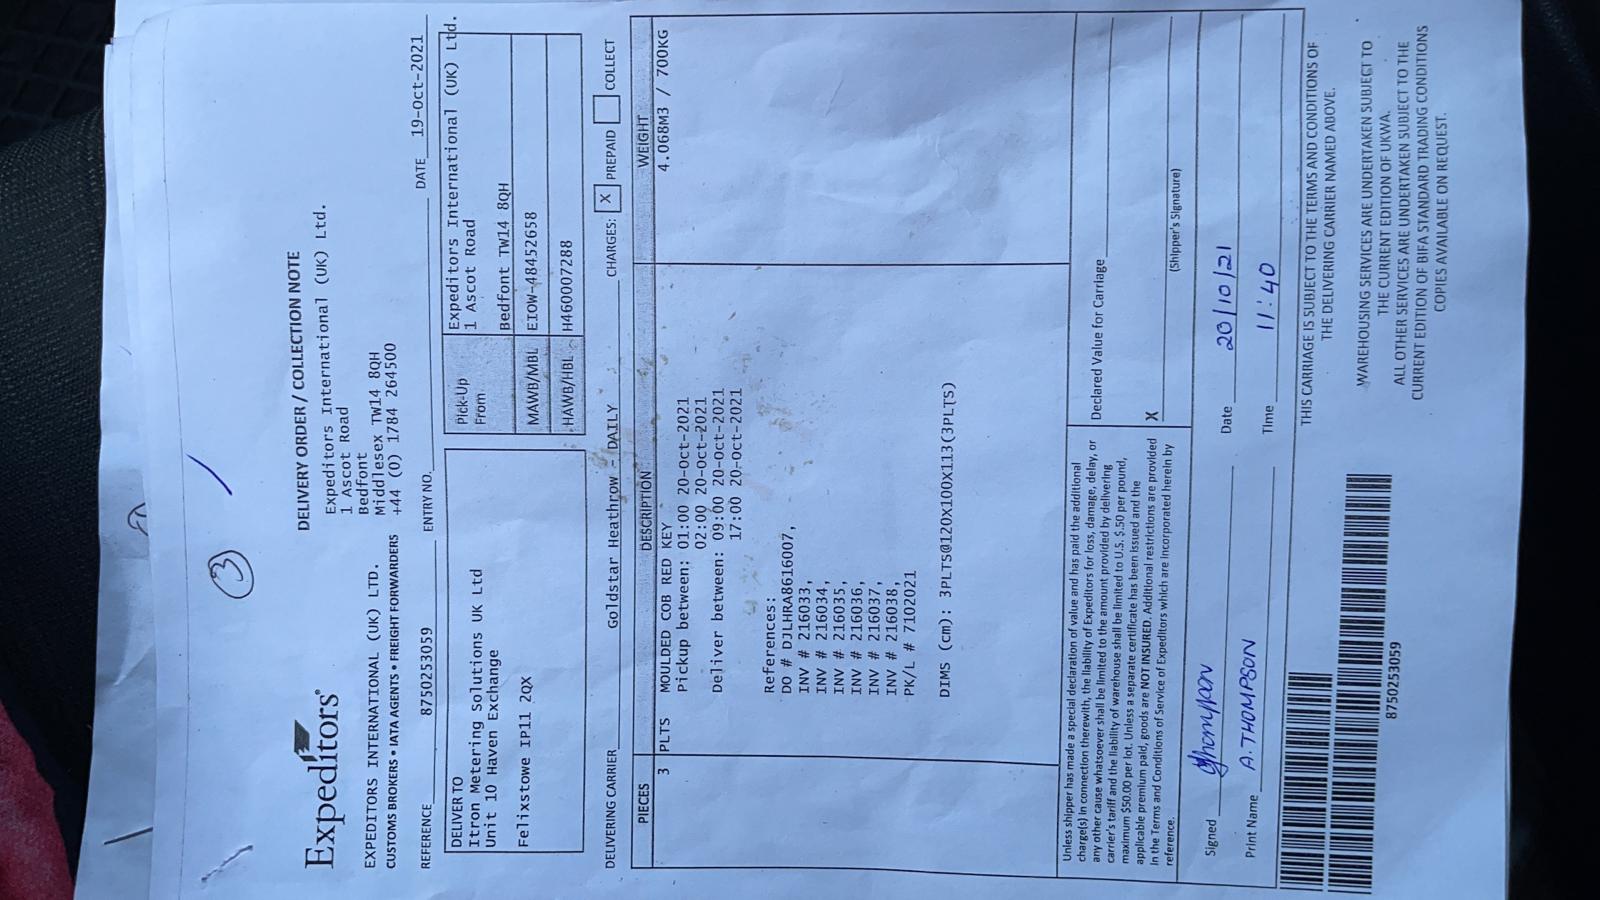 3
Expeditors®
DELIVERY ORDER / COLLECTION NOTE
Expeditors International (UK) Ltd.
1 Ascot Road
Bedfont
Middlesex TW14 8QH
+44 (0) 1784 264500
EXPEDITORS INTERNATIONAL (UK) LTD.
CUSTOMS BROKERS • IATA AGENTS • FREIGHT FORWARDERS
REFERENCE 8750253059 ENTRY NO. DATE 19-Oct-2021
DELIVER TO
Itron Metering Solutions UK Ltd
Unit 10 Haven Exchange
Felixstowe IP11 2QX
Pick-Up From
Expeditors International (UK) Ltd.
1 Ascot Road
Bedfont TW14 8QH
MAWB/MBL EIOW-48452658
HAWB/HBL H460007288
DELIVERING CARRIER Goldstar Heathrow - DAILY CHARGES: X PREPAID COLLECT
PIECES DESCRIPTION WEIGHT
3 PLTS MOULDED COB RED KEY 4.068M3 / 700KG
Pickup between: 01:00 20-Oct-2021
02:00 20-Oct-2021
Deliver between: 09:00 20-Oct-2021
17:00 20-Oct-2021
References:
DO # DJLHRA8616007,
INV # 216033,
INV # 216034,
INV # 216035,
INV # 216036,
INV # 216037,
INV # 216038,
PK/L # 7102021
DIMS (cm): 3PLTS@120X100X113(3PLTS)
Unless shipper has made a special declaration of value and has paid the additional
charge(s) in connection therewith, the liability of Expeditors for loss, damage, delay, or
any other cause whatsoever shall be limited to the amount provided by delivering
carrier's tariff and the liability of warehouse shall be limited to U.S. $.50 per pound,
maximum $50.00 per lot. Unless a separate certificate has been issued and the
applicable premium paid, goods are NOT INSURED. Additional restrictions are provided
in the Terms and Conditions of Service of Expeditors which are incorporated herein by
reference.
Declared Value for Carriage
X
(Shipper's Signature)
Signed Thompson Date 20/10/21
Print Name A.THOMPSON Time 11:40
THIS CARRIAGE IS SUBJECT TO THE TERMS AND CONDITIONS OF
THE DELIVERING CARRIER NAMED ABOVE.
WAREHOUSING SERVICES ARE UNDERTAKEN SUBJECT TO
THE CURRENT EDITION OF UKWA.
ALL OTHER SERVICES ARE UNDERTAKEN SUBJECT TO THE
CURRENT EDITION OF BIFA STANDARD TRADING CONDITIONS
COPIES AVAILABLE ON REQUEST.
8750253059